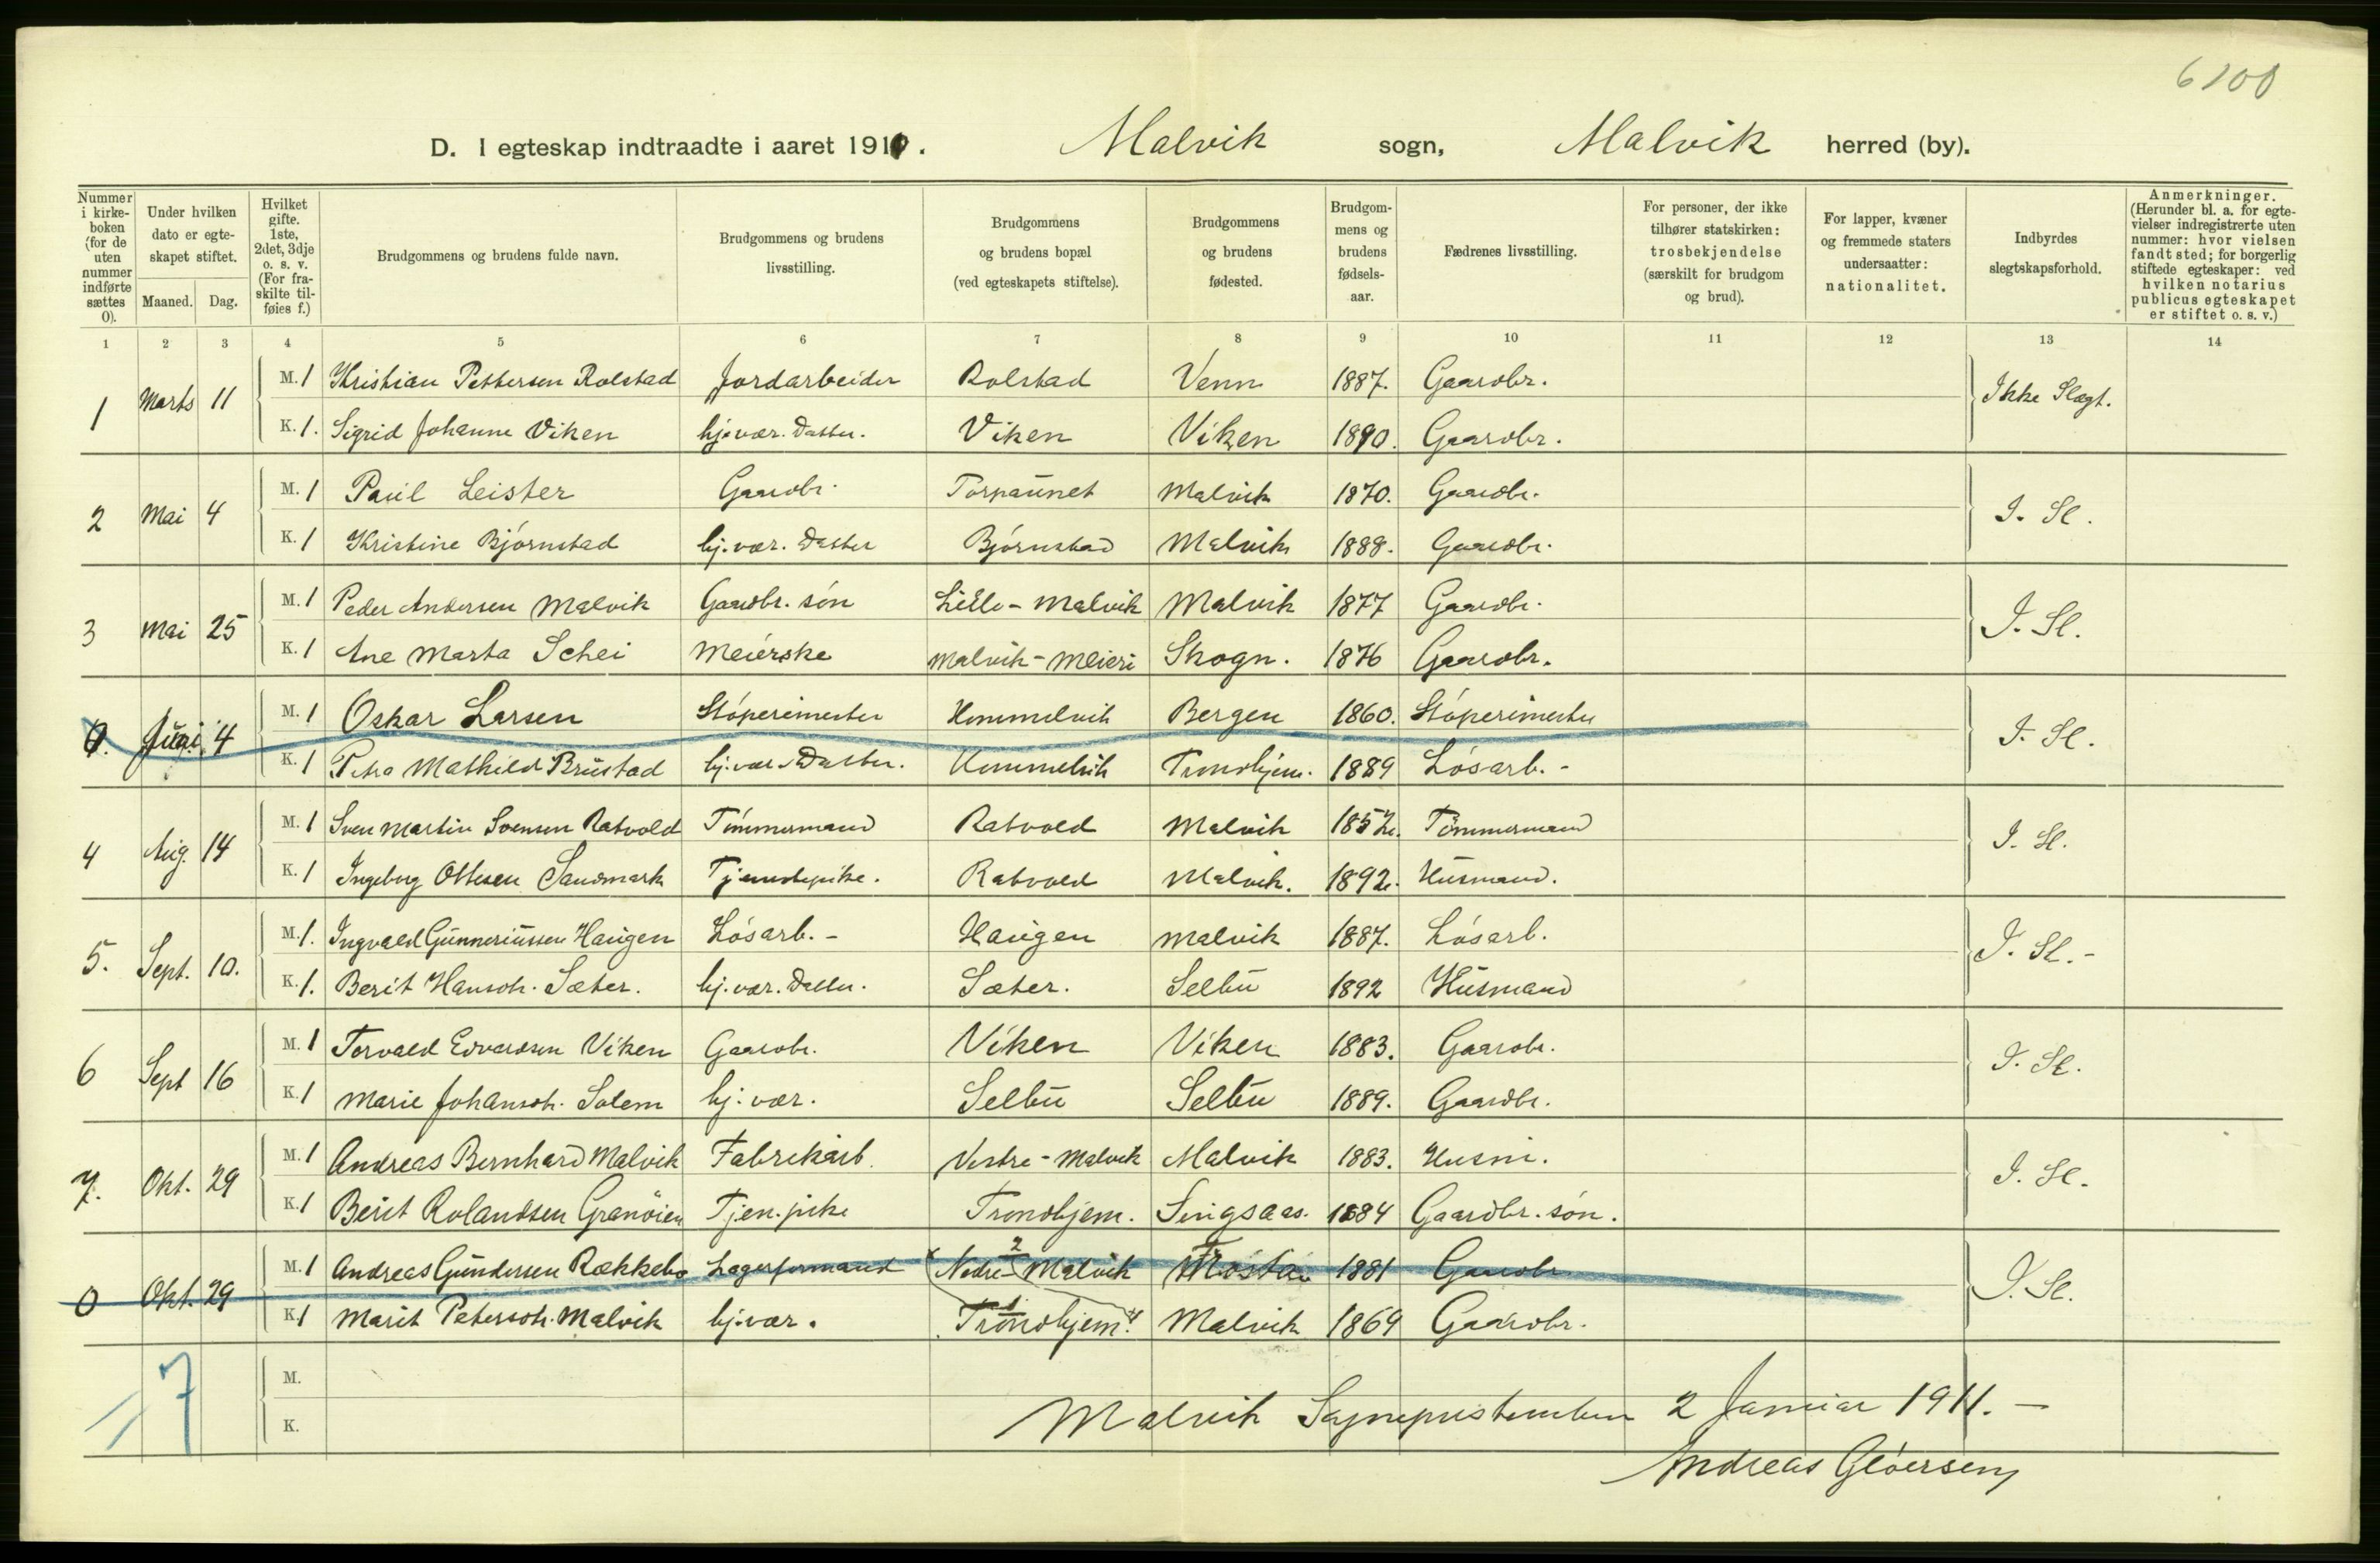 6100
D. I egteskap indtraadte i aaret 1910. Malvik sogn, Malvik herred (by).
Nummer i kirkeboken (for de uten nummer indførte sættes 0).
Under hvilken dato er egteskapet stiftet.
Maaned. Dag.
Hvilket gifte. 1ste, 2det, 3dje o. s. v. (For fraskilte tilføies f.)
Brudgommens og brudens fulde navn.
Brudgommens og brudens livsstilling.
Brudgommens og brudens bopæl (ved egteskapets stiftelse).
Brudgommens og brudens fødested.
Brudgommens og brudens fødselsaar.
Fædrenes livsstilling.
For personer, der ikke tilhører statskirken: trosbekjendelse (særskilt for brudgom og brud).
For lapper, kvæner og fremmede staters undersaatter: nationalitet.
Indbyrdes slegtskapsforhold.
Anmerkninger. (Herunder bl. a. for egtevielser indregistrerte uten nummer: hvor vielsen fandt sted; for borgerlig stiftede egteskaper: ved hvilken notarius publicus egteskapet er stiftet o. s. v.)
1 2 3 4 5 6 7 8 9 10 11 12 13 14
1 Marts 11 M. 1 Kristian Pettersen Rolstad Jordarbeider Rolstad Venn 1887. Gaardbr. Ikke Slægt.
K. 1. Sigrid Johanne Viken hj. vær. Datter. Viken Viken 1890. Gaardbr.
2 Mai 4 M. 1 Paul Leister Gaardbr. Torpaunet Malvik 1870. Gaardbr. I. Sl.
K. 1 Kristine Bjørnstad hj. vær. Datter Bjørnstad Malvik 1888. Gaardbr.
3 Mai 25 M. 1 Peder Andersen Malvik Gaardbr. søn Lille-Malvik Malvik 1877 Gaardbr. I. Sl.
K. 1 Ane Marta Schei Meierske Malvik-Meieri Skogn. 1876 Gaardbr.
0. Juni 4 M. 1 Oskar Larsen Støperimester Hommelvik Bergen 1860. Støperimester I. Sl.
K. 1 Petra Mathilde Brustad hj. vær. Datter. Hommelvik Trondhjem. 1889 Løsarb. -
4 Aug. 14 M. 1 Sven Martin Svensen Ratvold Tømmermand Ratvold Malvik Tømmermand I. Sl.
K. 1 Ingeborg Ottesen Sandmark Tjenstepike. Ratvold Malvik. 1892. Husmand.
5. Sept. 10. M. 1. Ingvald Gunneriussen Haugen Løsarb. - Haugen Malvik 1887. Løsarb. I. Sl. -
K. 1. Berit Hansdr. Sæter. hj. vær. Datter. Sæter. Selbu 1892 Husmand
6 Sept 16 M. 1 Torvald Edvardsen Viken Gaardbr. Viken Viken 1883. Gaardbr. I. Sl.
K. 1 Marie Johansdr. Solem hj. vær. Selbu Selbu 1889. Gaardbr.
7. Okt. 29 M. 1 Andreas Bernhard Malvik Fabrikarb. Vestre-Malvik Malvik 1883. Husm. I. Sl.
K. 1 Berit Rolandsen Granøien Tjen. pike Trondhjem. Singsaas. 1884 Gaardbr. søn.
0 Okt. 29 M. 1 Andreas Gundersen Rækkebo Lagerformand Nedre-Malvik 2 Frosta 1881 Gaardbr I. Sl.
K. 1 Marit Petersdr. Malvik hj. vær. Trondhjem. 1 Malvik 1869 Gaardbr.
17 M.
K.
Malvik Sogneprestembede 2 Januar 1911. -
Andreas Gløersen